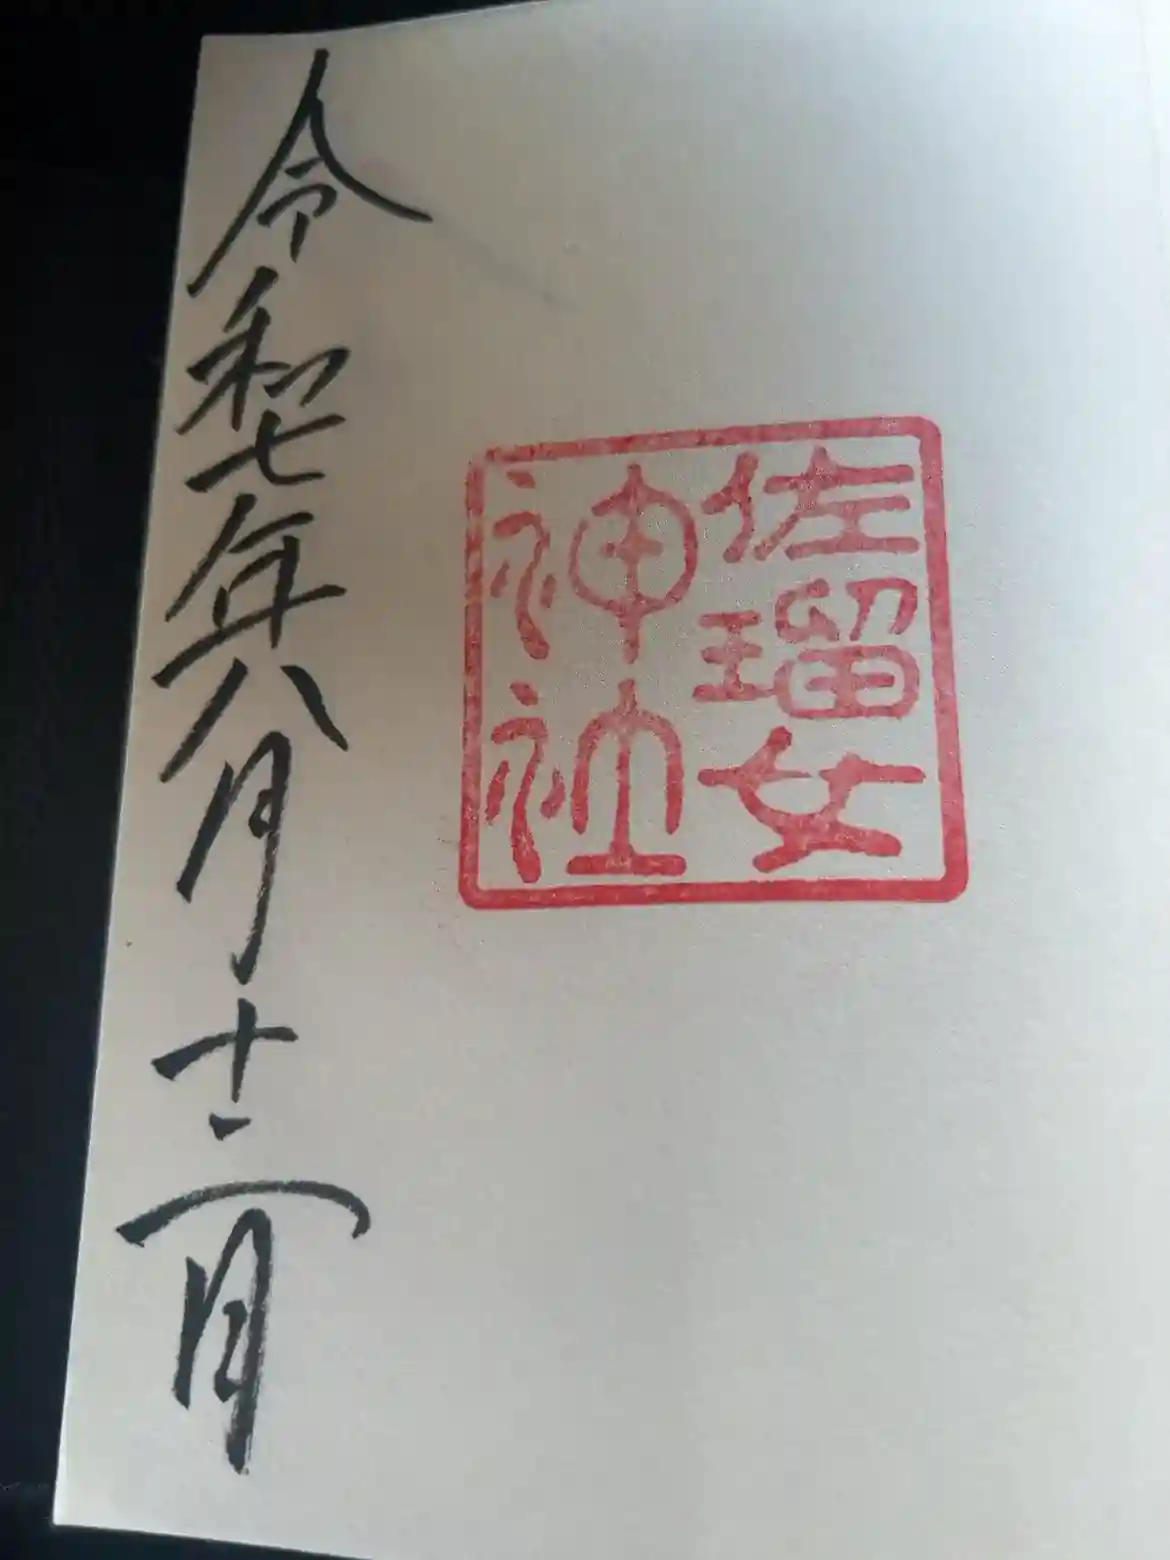 佐瑠女
神社
令和七年八月十二日